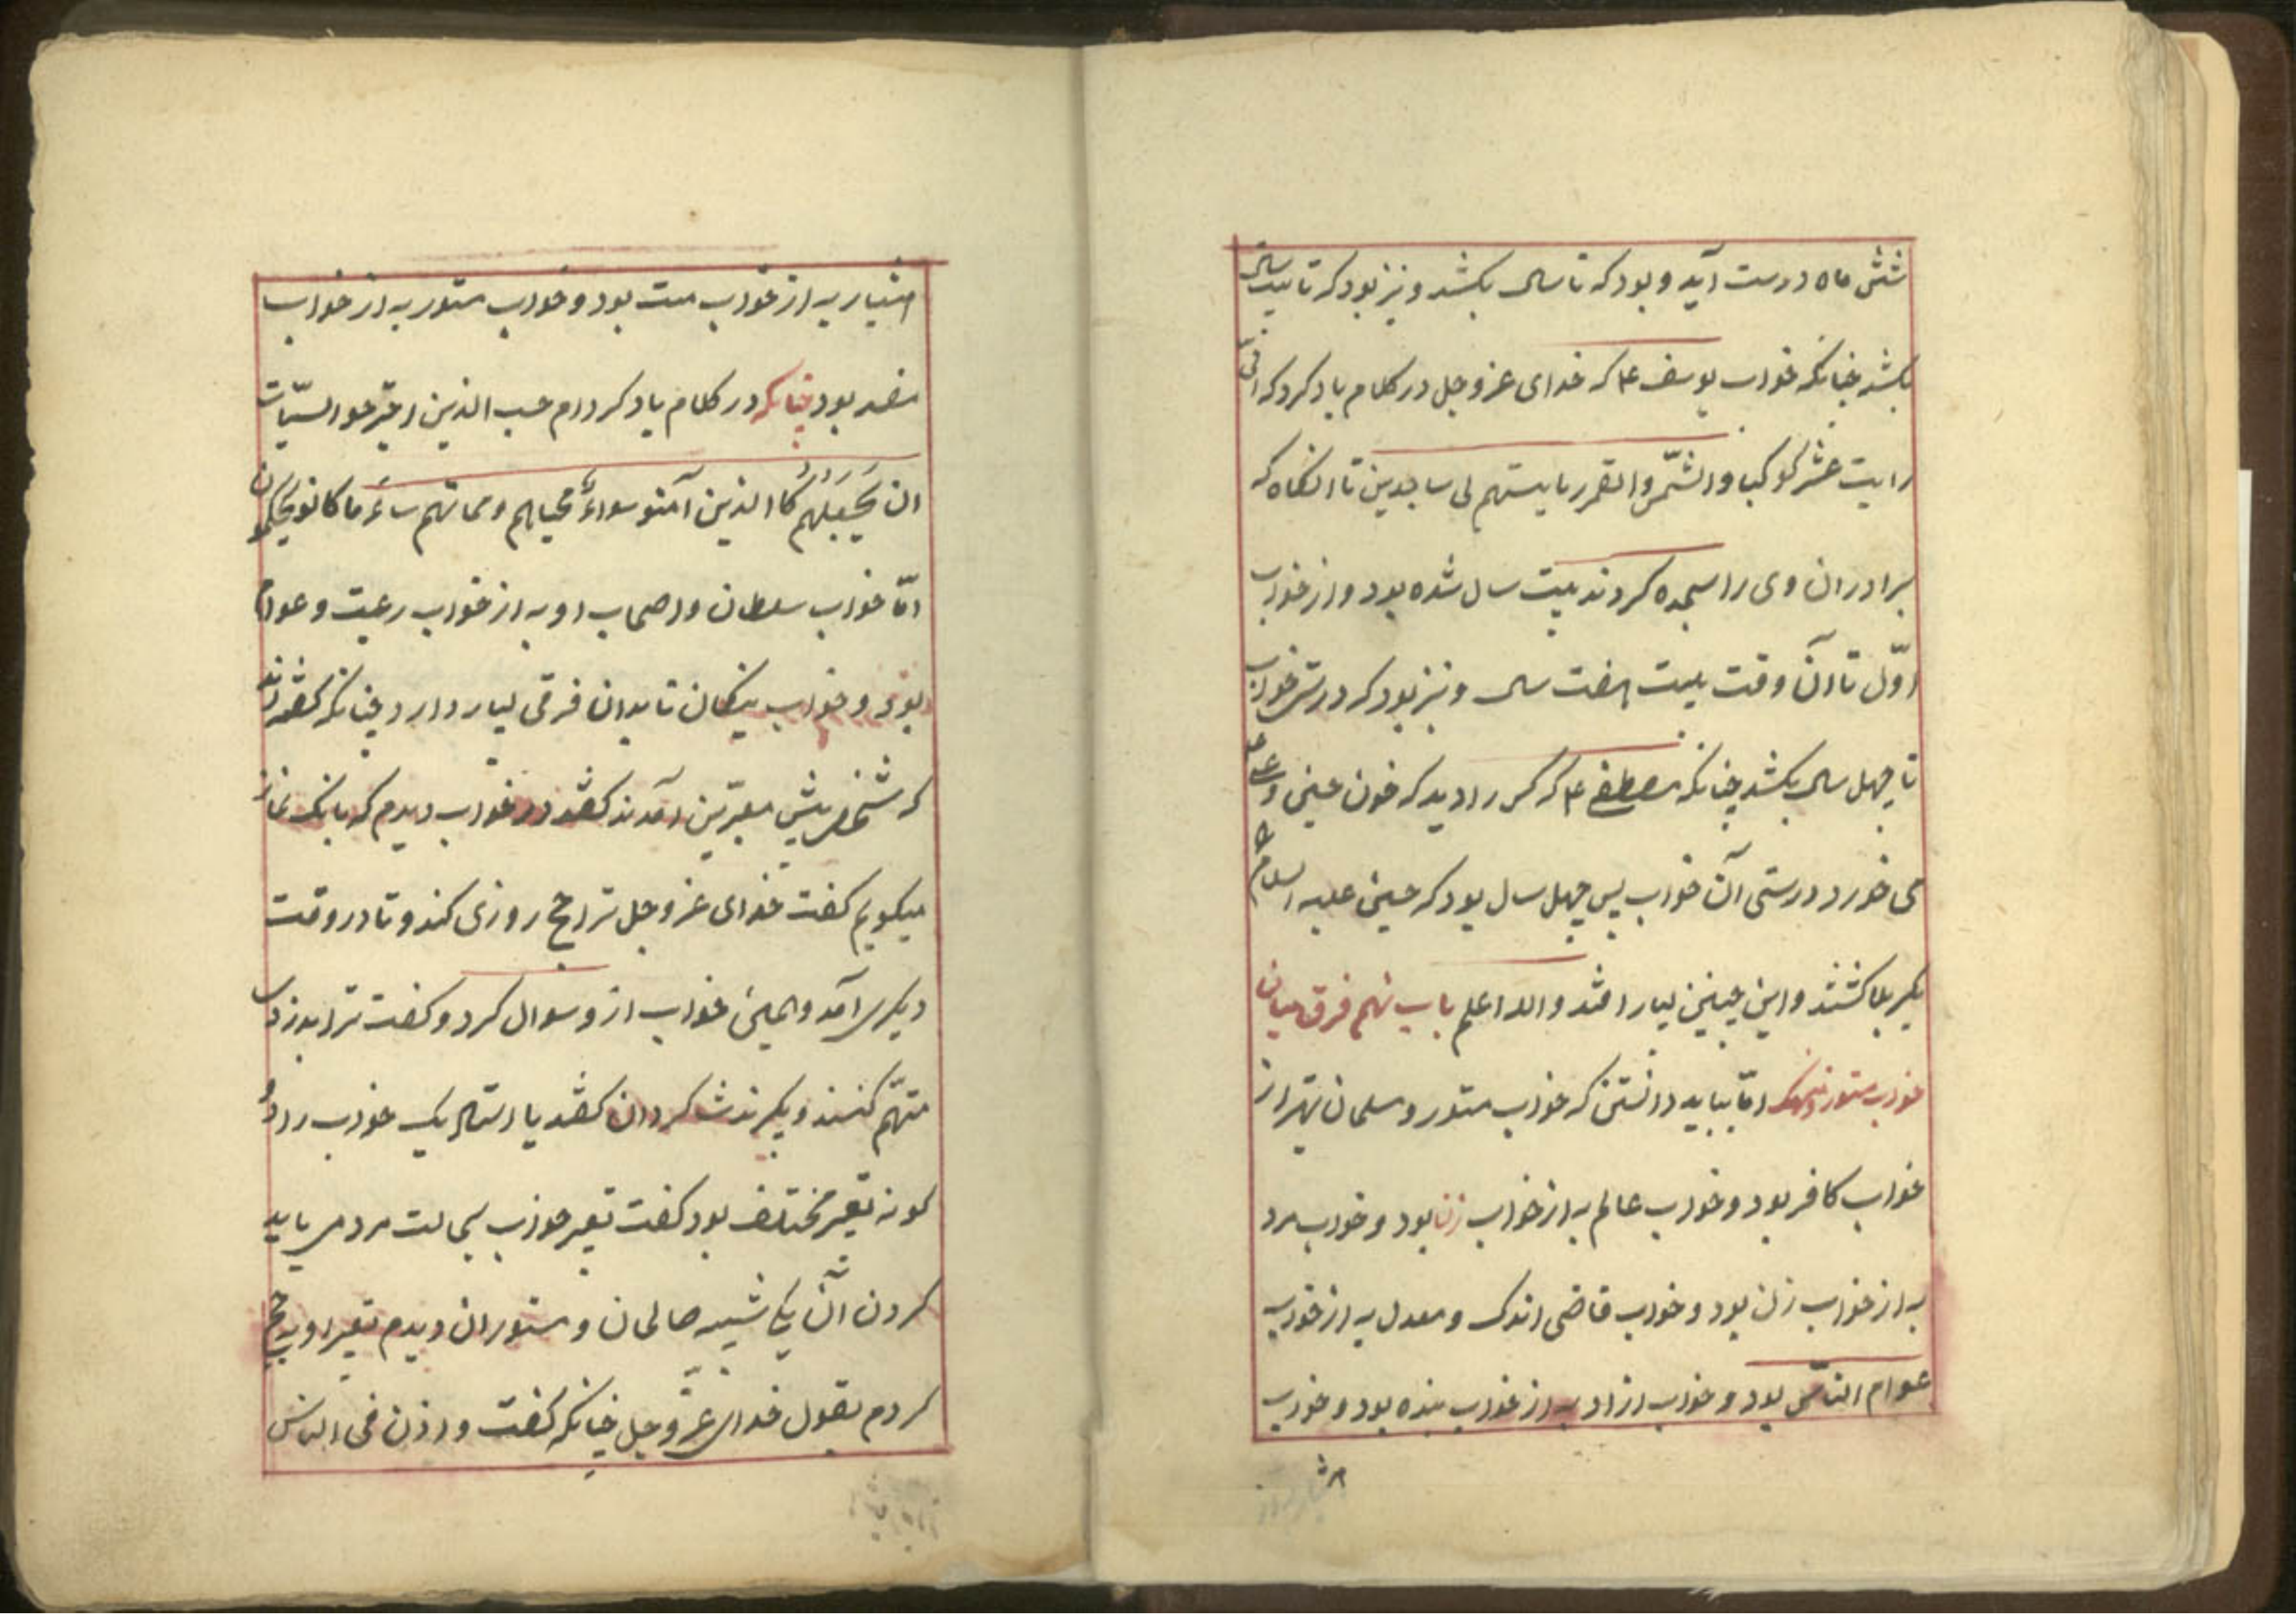 شش ماه درست آید و بود که تا سالی بکشد و نیز بود که تا بیست سال
بکشد چنانکه خواب یوسف ع م که خدای عز و جل در کلام یاد کرد که انی
رایت عشر کوکبا و الشّمس و القمر رایتهم لی ساجدین تا انکاه که
برادران وی را سجده کردند بیست سال شده بود و از خواب
اوّل تا آن وقت بیست هفت سال و نیز بود که درستی خواب
تا چهل سال بکشد چنانکه مصطفی ع م که کسی را دید که خون حسین
می خورد درستی آن خواب پس چهل سال بود که حسین علیه السلام
بکربلا کشتند و این چنین بسیار افتد و الله اعلم باب نهم فرق میان
خواب مستور اما بباید دانستن که خواب مستور و مسلمان بهتر از
خواب کافر بود و خواب عالم به از خواب زن بود و خواب مرد
به از خواب زن بود و خواب قاضی اندک و معدل به از خواب
عوام الناس بود و خواب ازاد به از خواب بنده بود و خواب
هش
هشیار به از خواب مست بود و خواب مستور به از خواب
مفسد بود چنانکه در کلام یاد کرد ام حسب الذین اجترحوا السیّات
ان نجعلهم کا الذین آمنو سواءً محیاهم و مماتهم ساءَ ما کانو یحکمون
امّا خواب سلطان و اصحاب او به از خواب رعیت و عوام
بود و خواب نیکان تا بدان فرقی بسیار دارد چنانکه کفته‌اند
که شخصی پیش معبّرین آمدند کفتند در خواب دیدم که بانک نماز
میکویم کفت خدای عز و جل ترا حج روزی کند و تا در وقت
دیکری آمد و همین خواب از و سوال کرد و کفت ترا بدزدی
متهّم کنند و بکیرند شاکردان کفتند یا استاد یک خواب را دو
کونه تعبیر مختلف بود کفت تعبیر خواب بحالت مردم باید
کردن آن یکی شبیه صالحان و مستوران دیدم تعبیر او به حج
کردم بقول خدای عزّ و جل چنانکه کفت و اذن فی الناس